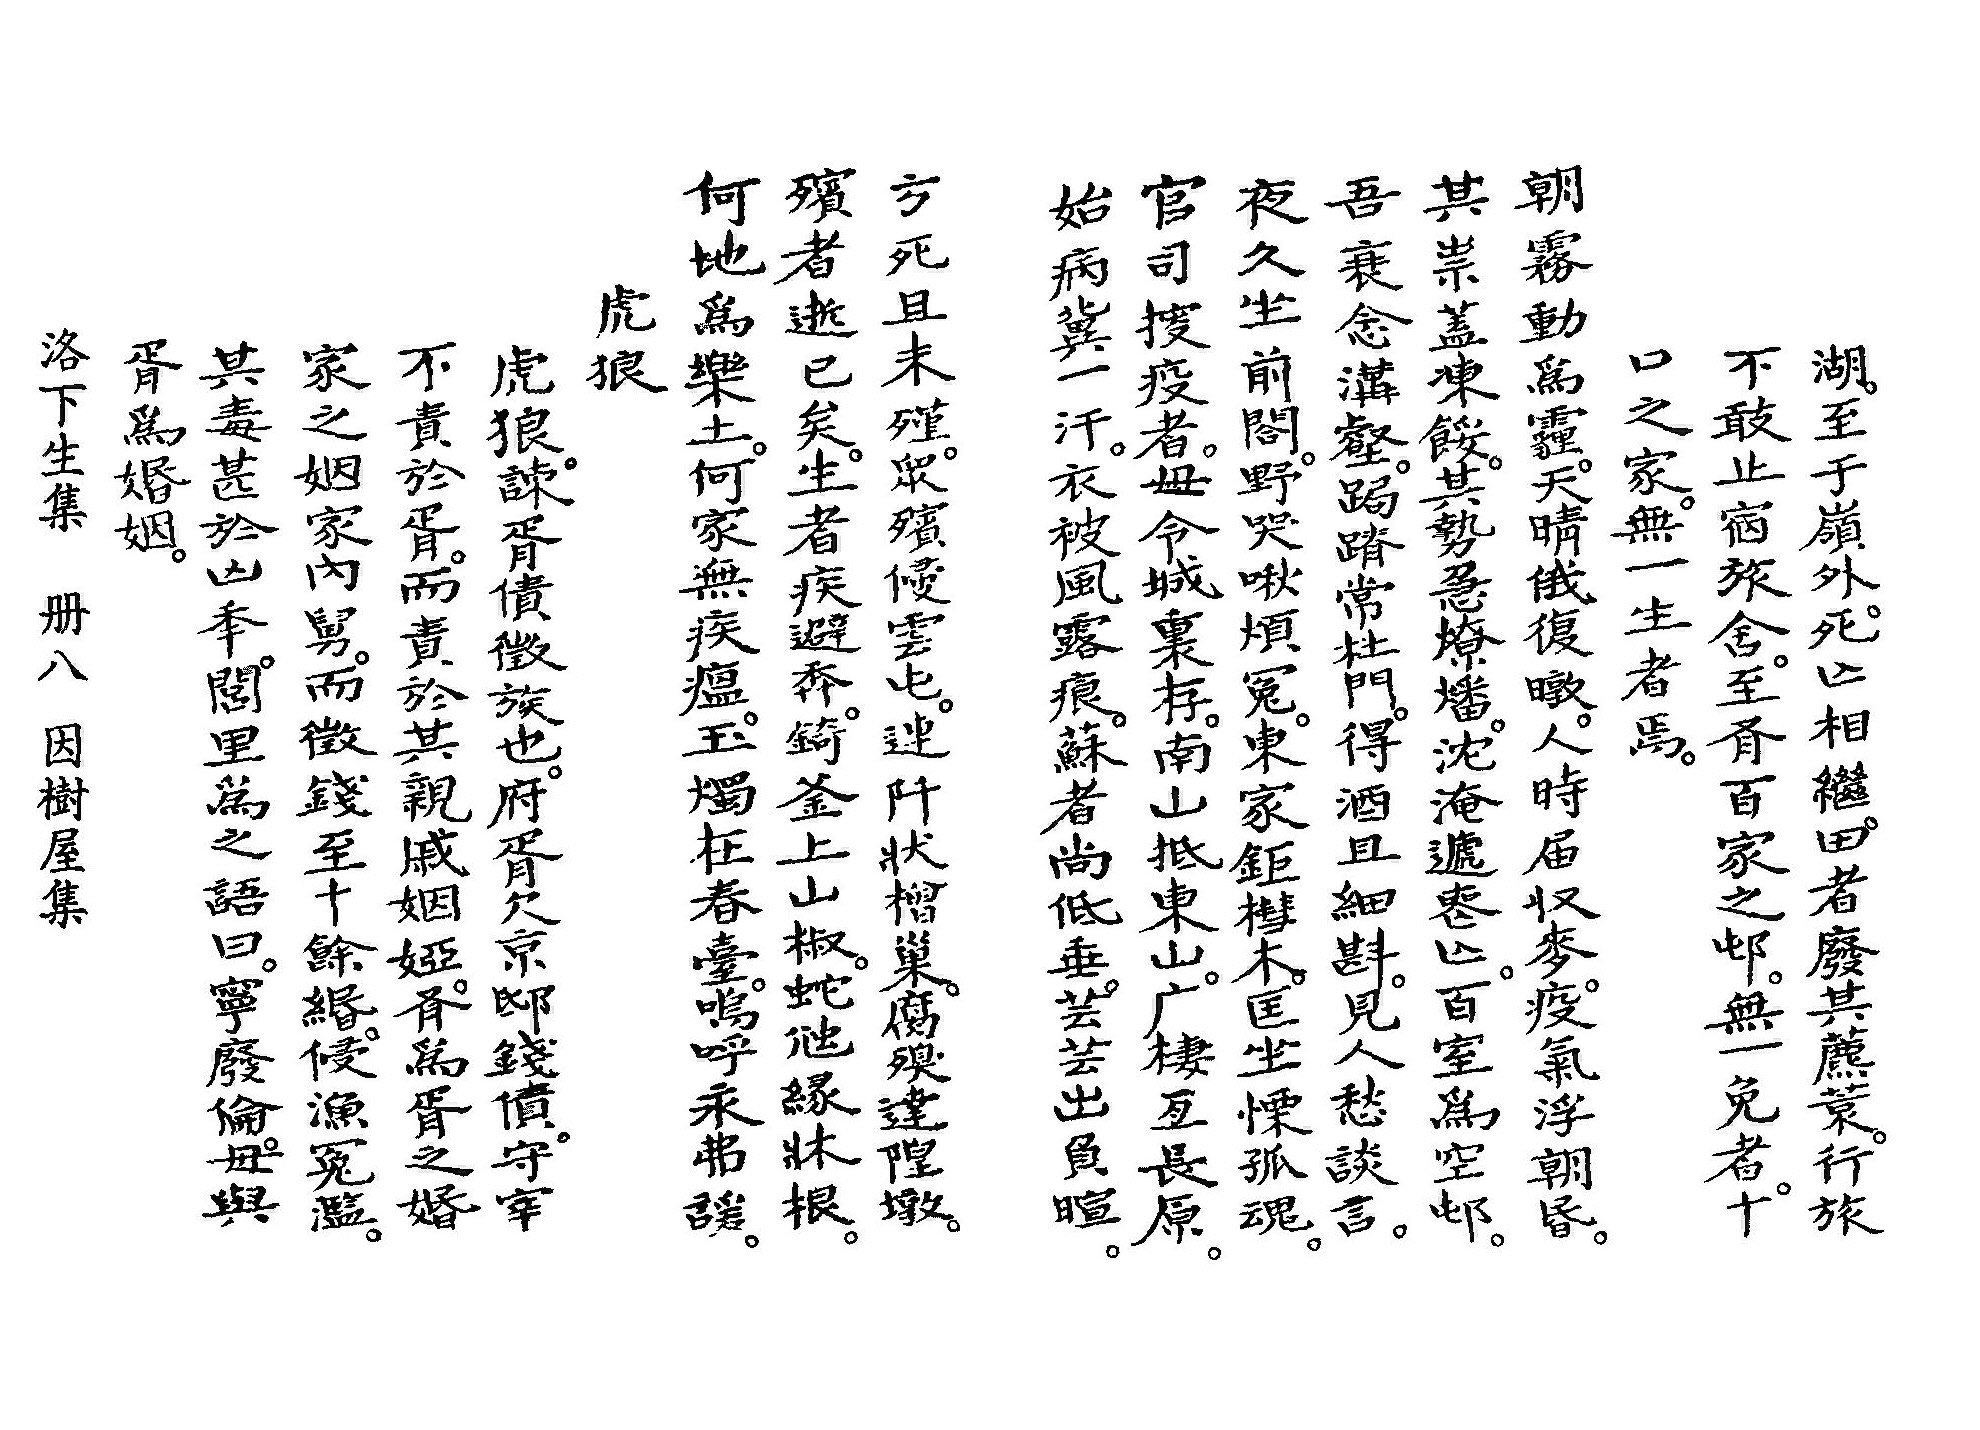 湖。至于嶺外。死亡相繼。田者廢其薦蓘。行旅
不敢止宿旅舍。至有百家之邨。無一免者。十
口之家。無一生者焉。
朝霧動爲霾。天晴俄復暾。人時届収麥。疫氣浮朝昏。
其祟蓋凍餒。其勢急燎燔。沈淹遞喪亡。百室爲空邨。
吾衰念溝壑。跼蹐常杜門。得酒且細斟。見人愁談言。
夜久坐前閤。野哭啾煩冤。東家鉅槥木。匡坐慄孤魂。
官司搜疫者。毋令城裏存。南山抵東山。广棲亙長原。
始病冀一汗。衣被風露痕。蘇者尚低垂。芸芸出負暄。
方死且未殣。眾殯侵雲屯。迷阡狀橧巢。腐殠達隍墩。
殯者逝已矣。生者疾避奔。錡釜上山椒。蛇虺緣牀根。
何地爲樂土。何家無疾瘟。玉燭在春臺。嗚呼永弗諼。
虎狼
虎狼。諫胥債徵族也。府胥欠京邸錢債。守宰
不責於胥。而責於其親戚姻婭。有爲胥之婚
家之姻家內舅。而徵錢至十餘緡。侵漁冤濫。
其毒甚於凶年。閭里爲之語曰。寧廢倫。毋與
胥爲婚姻。
洛下生集 册八 因樹屋集